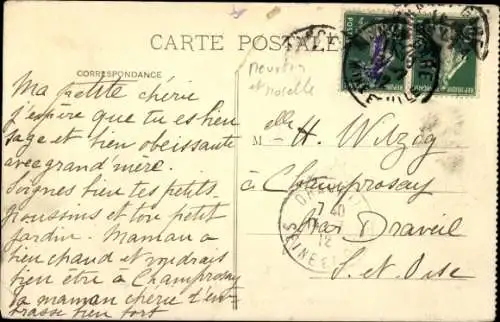 CARTE POSTALE
CORRESPONDANCE
Ma petite chérie
j'espère que tu es bien
sage et bien obeissante
avec grand'mère.
Soignes bien tes petits
poussins et ton petit
jardin. Maman a
bien chaud et voudrais
bien être à Champrosay
ta maman chérie t'em-
brasse bien fort
et moselle
Melle H. Wilzog
à Champrosay
par Draveil
S. et Oise
7 40
12
SEINE E